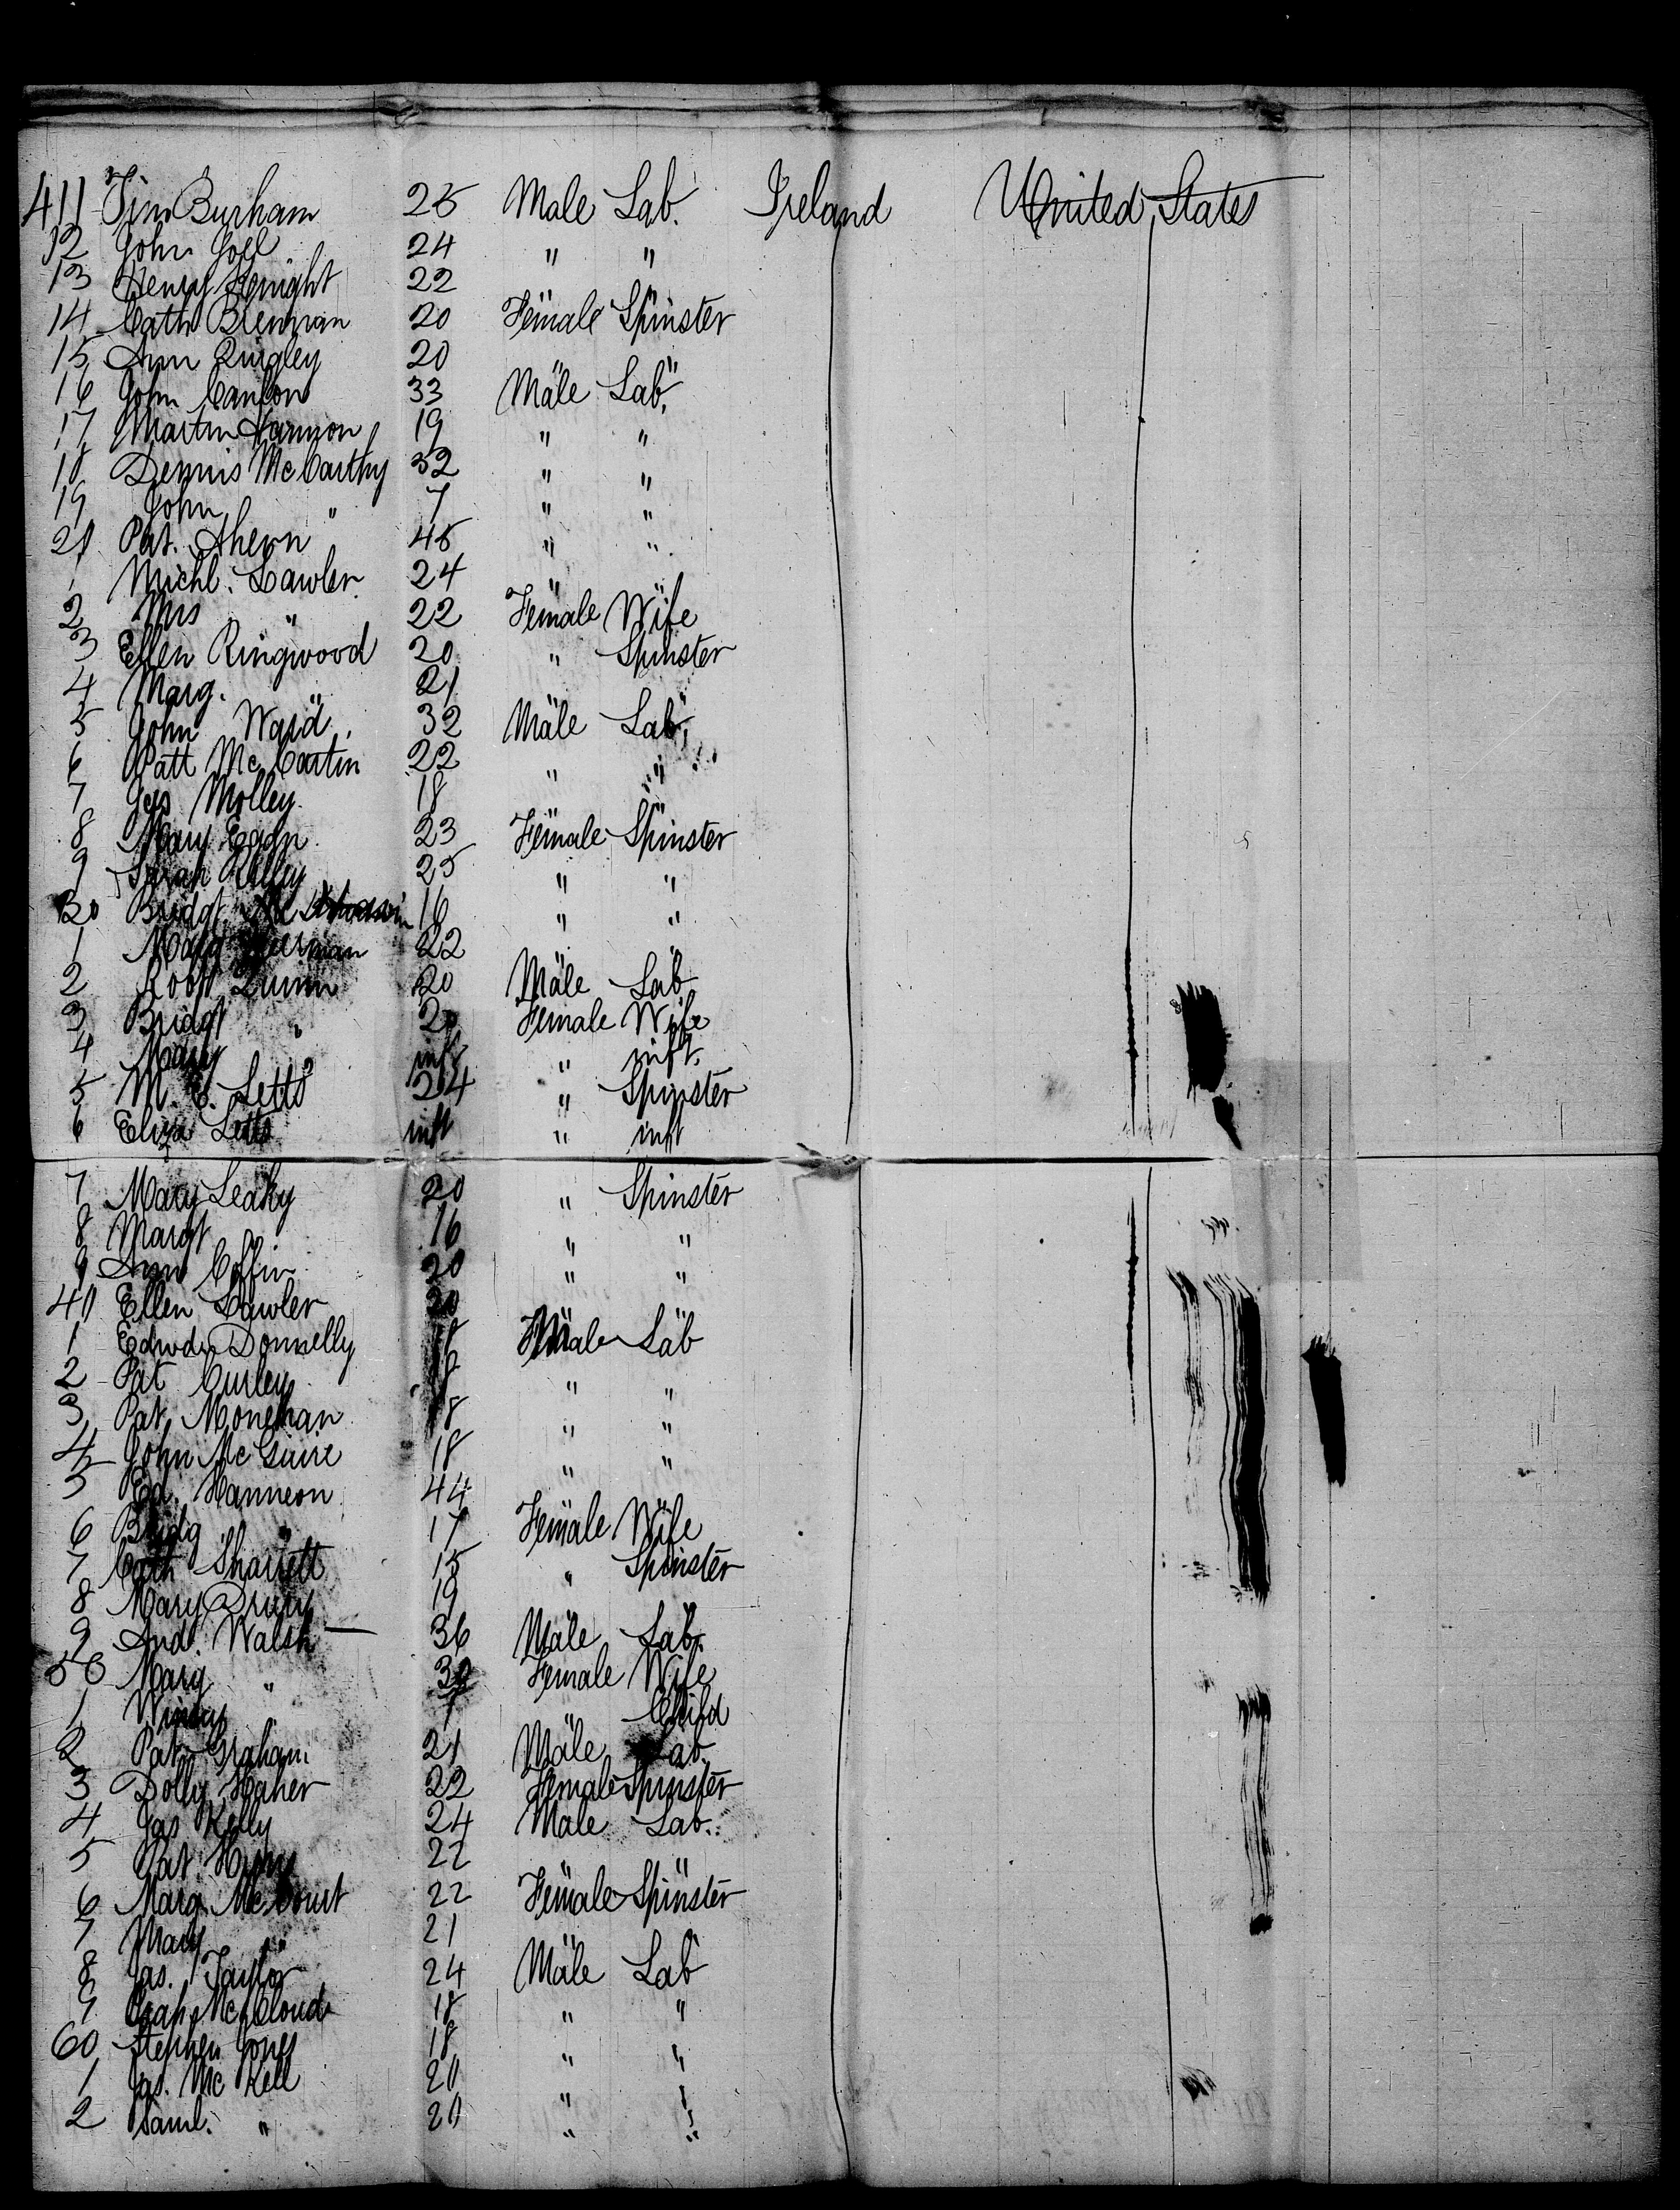 411 Jim Burham 25 Male Lab. Ireland United States
12 John 24 " "
13 Henry 22 " "
14 Cath Brennan 20 Female Spinster
15 Ann Quigley 20 " "
16 John Canlon 33 Male Lab.
17 Martin Hannon 19 " "
18 Dennis McCarthy 32 " "
19 John " 7 " "
20 Pat. Ahern 45 " "
1 Michl. Lawler 24 "
2 Mrs " 22 Female Wife
3 Ellen Ringwood 20 " Spinster
4 Marg. " 21 " "
5 John Ward 32 Male Lab.
6 Patt McCartin 22 " "
7 Jas Molley 18 " "
8 Mary Egan 23 Female Spinster
9 Sarah Kelley 25 " "
30 Bridgt. 16 " "
1 Marg 22 " "
2 Robt Quinn 20 Male Lab
3 Bridgt " 20 Female Wife
4 Mary " inft " inft.
5 M. C. Letts 24 " Spinster
6 Eliza Letts inft " inft
7 Mary Leahy 20 " Spinster
8 Margt " 16 " "
9 Ann Coffin 20 " "
40 Ellen Lawler 20 " "
1 Edwd Donnelly 18 Male Lab
2 Pat Curley 18 " "
3 Pat Monehan 18 " "
4 John McGuire 18 " "
5 Ed. Hanneon 44 " "
6 Bridg " 17 Female Wife
7 Cath Sharrett 15 " Spinster
8 Mary Drury 19 " "
9 And. Walsh 36 Male Lab.
50 Marg " 30 Female Wife
1 Winny " " Child
2 Pat Graham 21 Male Lab.
3 Dolly Maher 22 Female Spinster
4 Jas Kelly 24 Male Lab.
5 Pat 22 " "
6 Marg McCourt 22 Female Spinster
7 Mary " 21 " "
8 Jas. Taylor 24 Male Lab
9 McCloud 18 " "
60 Stephen Jones 18 " "
1 Jas. McKell 20 " "
2 Saml. " 20 " "